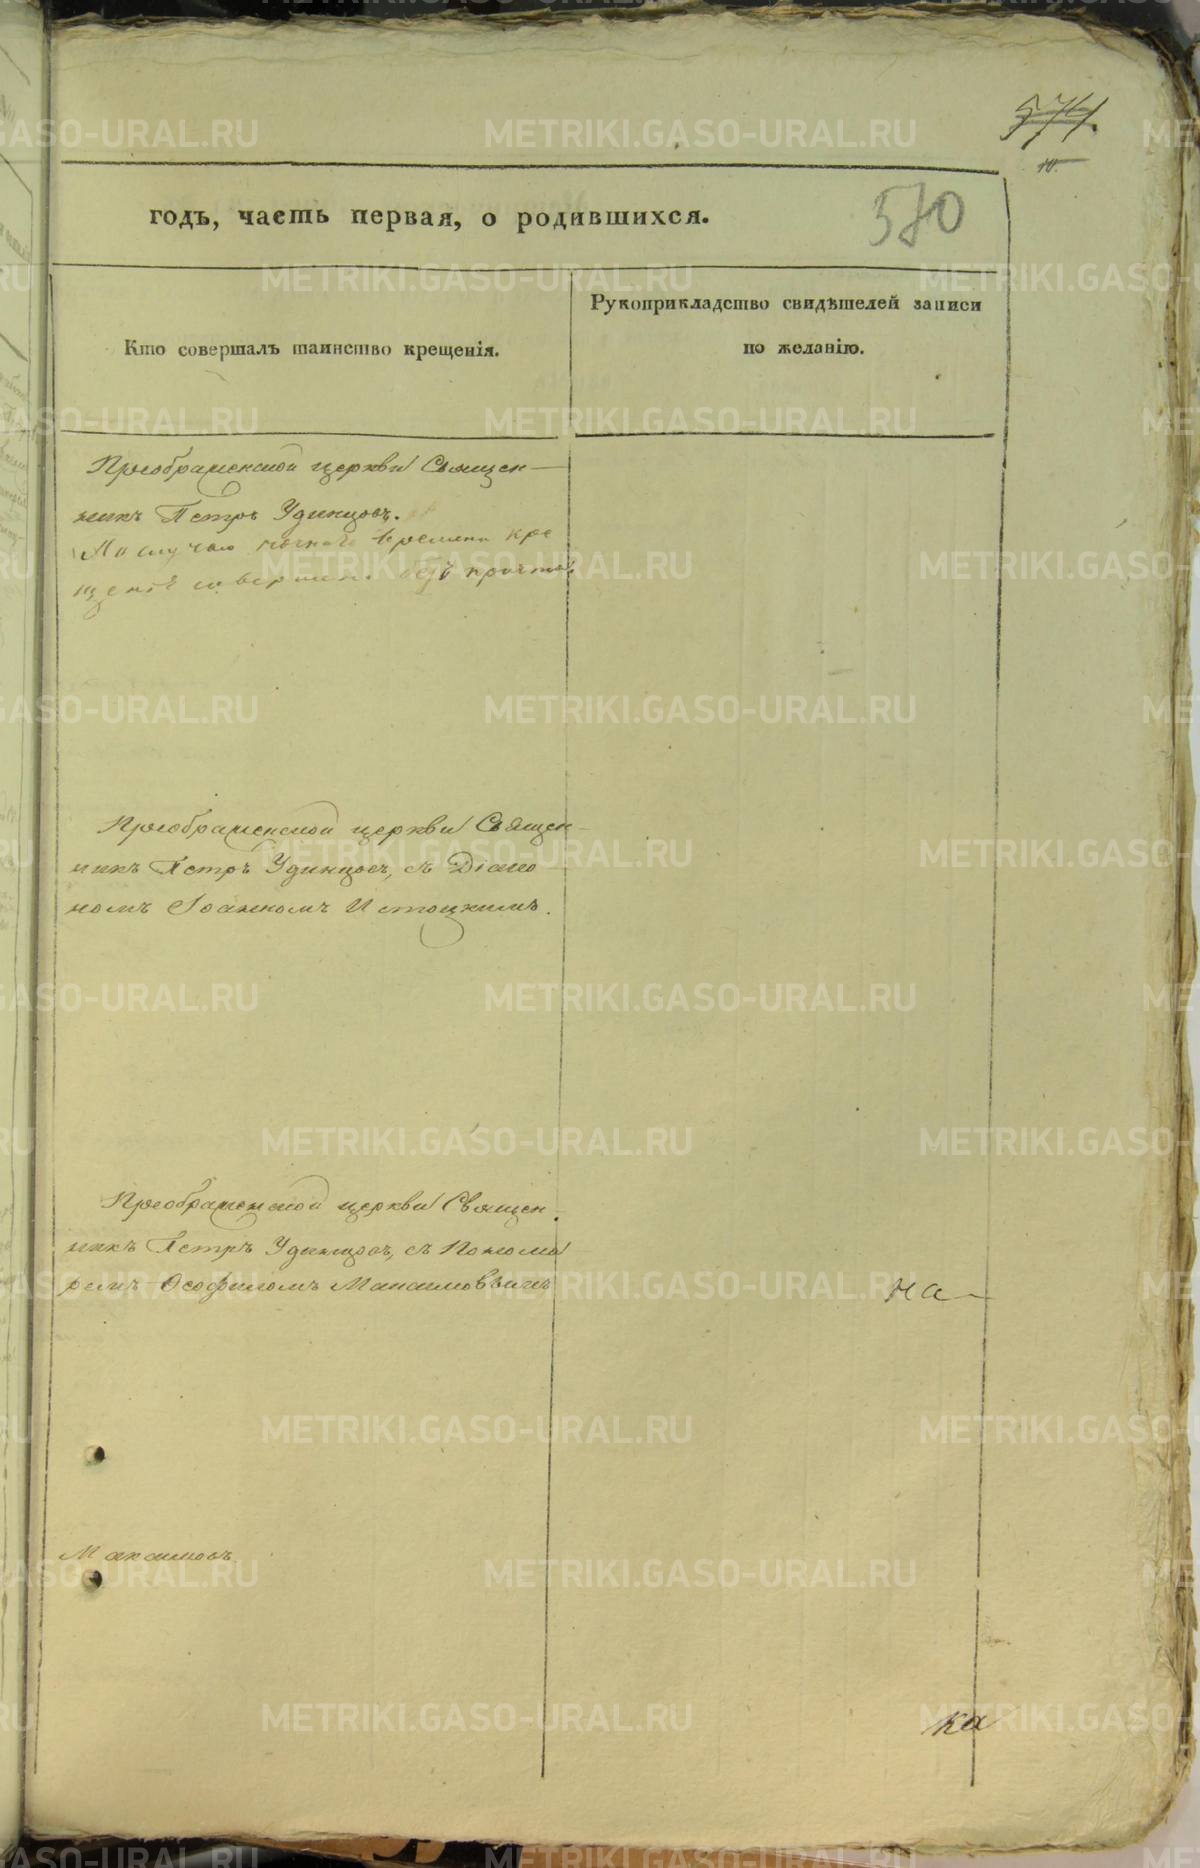 574.
10.
годъ, часть первая, о родившихся.
570
Кто совершалъ таинство крещенія.
Рукоприкладство свидѣтелей записи
по желанію.
Преображенской церкви Священ—
никъ Петръ Удинцовъ.
По случаю ночнаго времени кре
щеніе совершено безъ причта.
Преображенской церкви Священ—
никъ Петръ Удинцовъ, съ Діако—
номъ Іоанномъ Истоцкимъ.
Преображенской церкви Священ-
никъ Петръ Удинцовъ, съ Понома
ремъ Ѳеофиломъ Макаимовымъ
на—
ка
METRIKI.GASO-URAL.RU